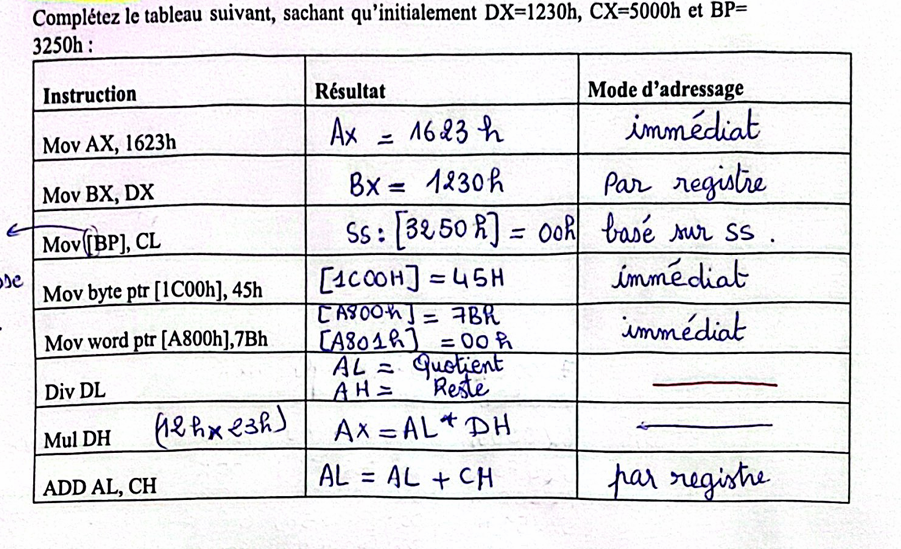 Complétez le tableau suivant, sachant qu'initialement DX=1230h, CX=5000h et BP=
3250h :
Instruction Résultat Mode d'adressage
Mov AX, 1623h Ax = 1623h immédiat
Mov BX, DX Bx = 1230h Par registre
Mov [BP], CL SS: [3250h] = 00h basé sur SS.
Mov byte ptr [1C00h], 45h [1C00H] = 45H immédiat
Mov word ptr [A800h],7Bh [A800h] = 7Bh immédiat
[A801h] = 00h
Div DL AL = Quotient
AH = Reste
Mul DH (12h x 23h) Ax = AL * DH
ADD AL, CH AL = AL + CH par registre